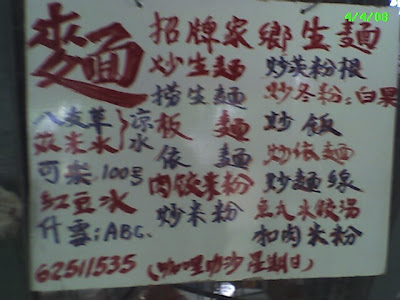 4/4/08
麵
招牌家鄉生麵
炒生麵
捞生麵
板 麵
依 麵
肉饺米粉
炒米粉
炒粉根
炒冬粉:白果
炒 飯
炒依麵
炒麵線
魚丸水饺湯
扣肉米粉
八支草
米水
凉水
可楽.100号
红豆冰
什雪:ABC.
62511535 (咖哩叻沙星期日)